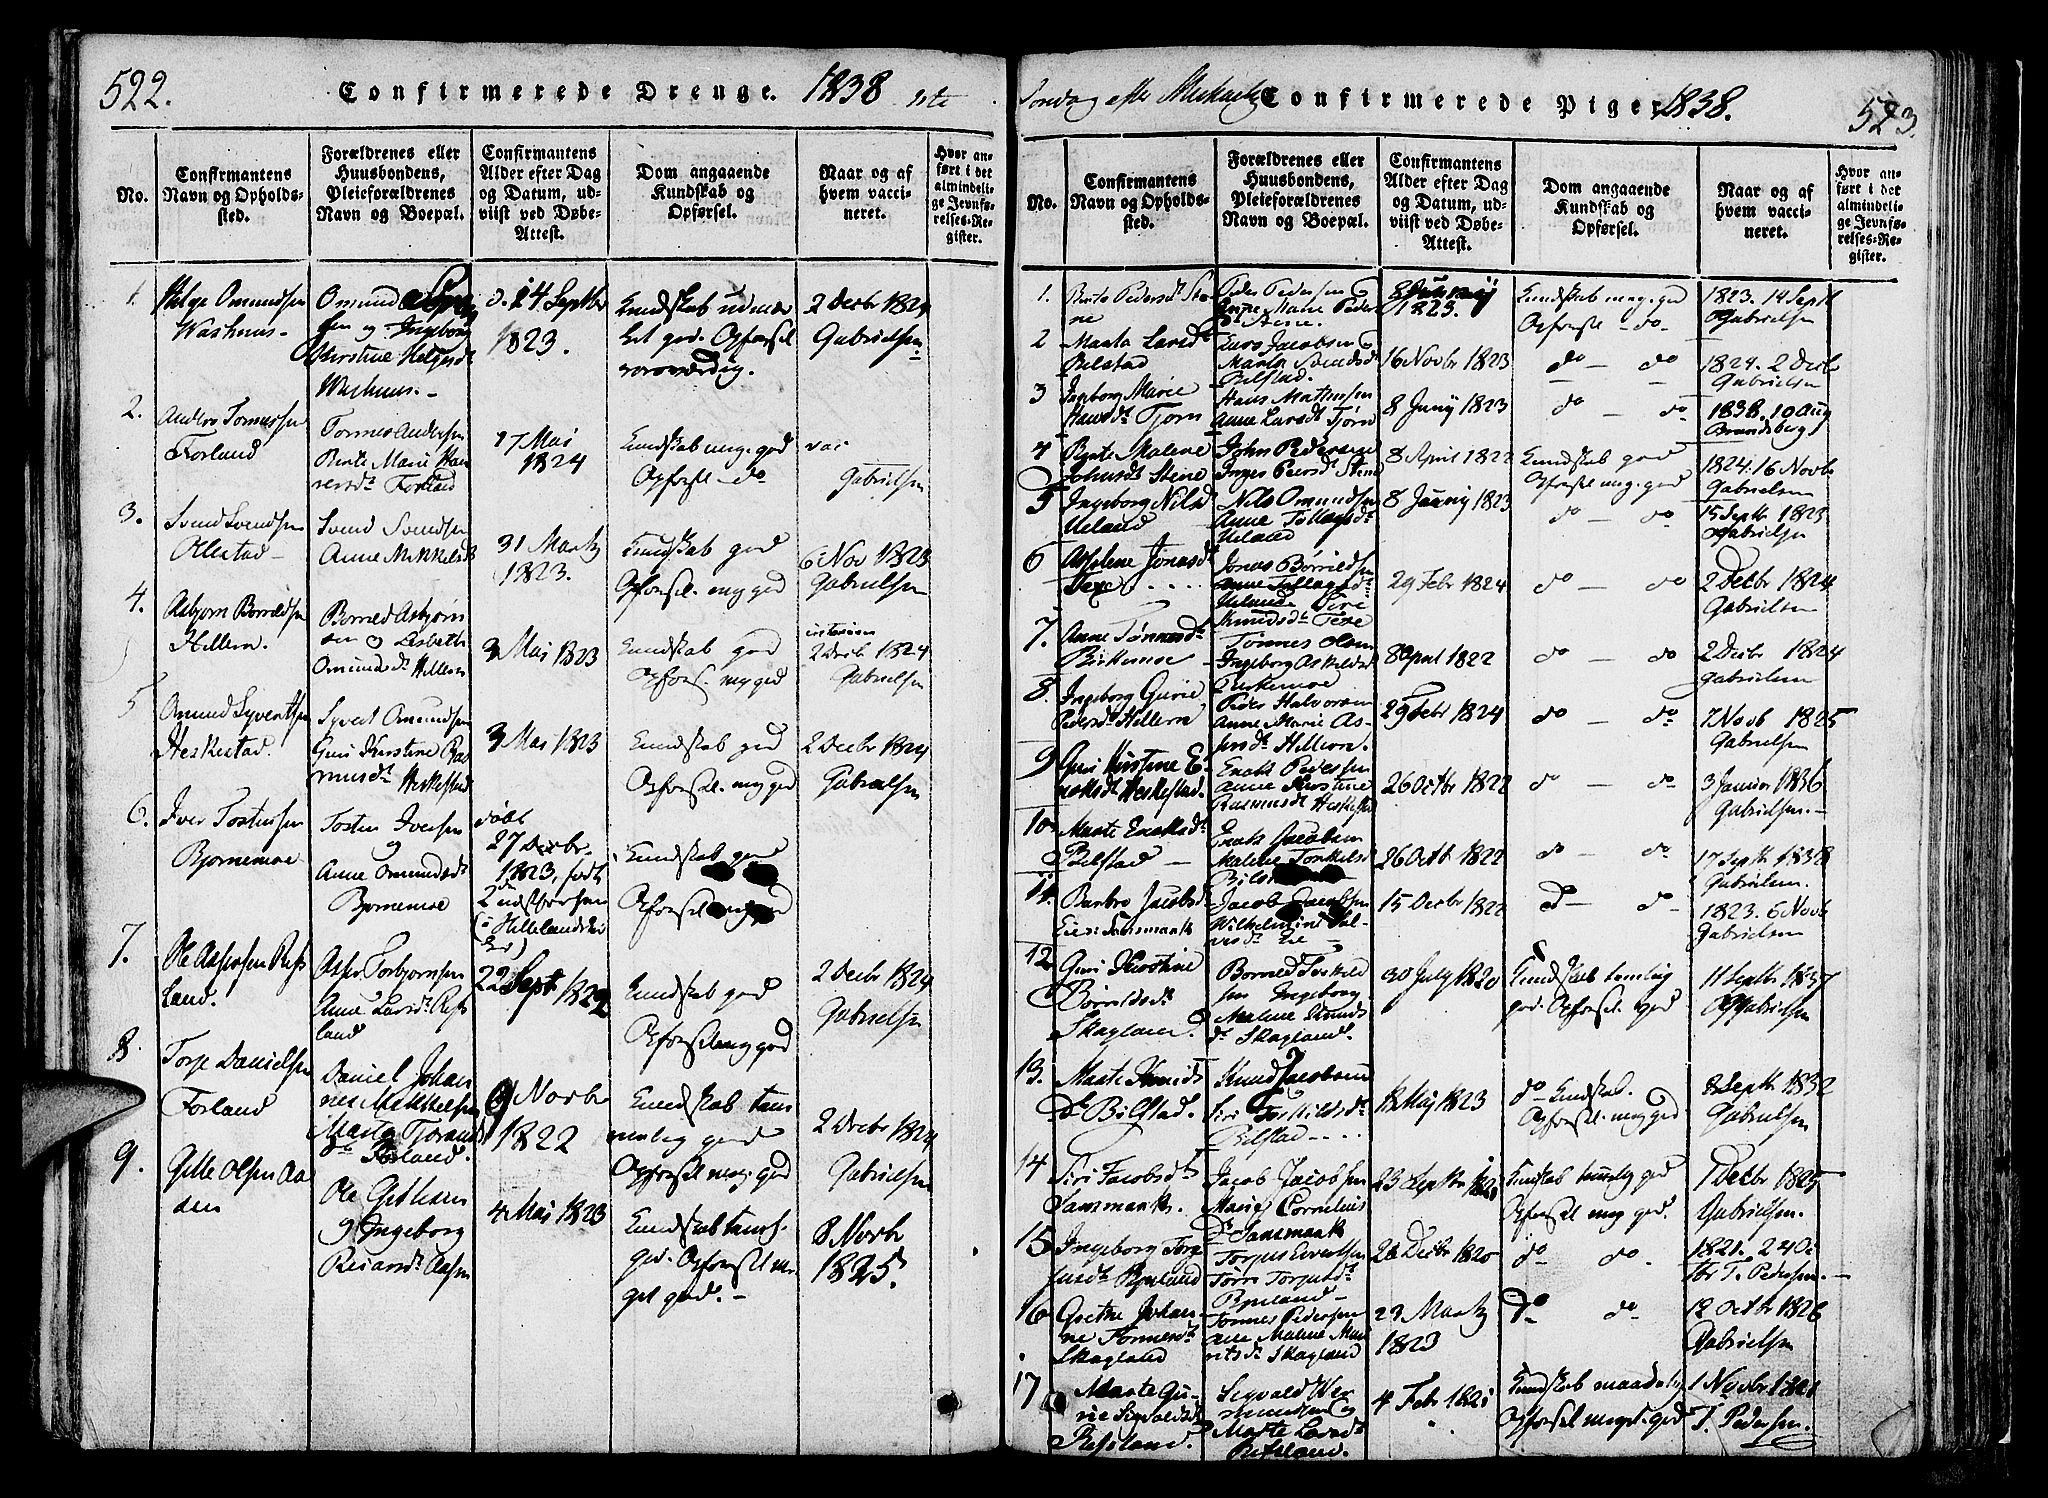 522.
Confirmerede Drenge. 1838 1ste
No.
Confirmantens
Navn og Opholds-
sted.
Forældrenes eller
Huusbondens,
Pleieforældrenes
Navn og Boepæl.
Confirmantens
Alder efter Dag
og Datum, ud-
viist ved Døbe-
Attest.
Dom angaaende
Kundskab og
Opførsel.
Naar og af
hvem vacci-
neret.
Hvor an-
ført i det
almindeli-
ge Jevnfø-
relses-Re-
gister.
1.
Helge Omundsen
Washuus-
Omund
sen og Ingeborg
Kirstine Helgesdt
Washuus.-
d. 24 Septbr
1823.
Kundskab udmær
ket god. Opførsel
roesværdig.
2 Decbr 1824
Gabrielsen
2.
Anders Tønnessen
Forland
Tønnes Andersen
Berte Marie Han
sensdt Forland
17 Mai
1824
Kundskab meg. god
Opførsel - do
vac
Gabrielsen
3.
Svend Svendsen
Ollestad-
Svend Svendsen
Anne Mikkelsdt
31 Martz
1823.
Kundskab god
Opførsel. meg god
6 Nov 1823
Gabrielsen
4.
Asbjørn Borrildsen
Hellern.
Borred Asbjørn
sen og Asbeth
Omundsdt Hellern
3 Mai 1823
Kundskab god
Opførsl. meg god
2 Decbr 1824
Gabrielsen
5
Omund Syvertsen
Heskestad.
Syvert Omundsen
Guri Kirstine Ras
musdt Heskestad
3 Mai 1823
Kundskab god
Opførsel. meg god
2 Decbr 1824
Gabrielsen
6.
Iver Tostensen
Bjørnemoe
Tosten Iversen
og
Anne Omundsdt
Bjørnemoe
døbt
27 Decbr.
1823, født
Kundskab god
Opførsel meg god
7.
Ole Aspersen Refs
land.
Asper Torbjørnsen
Anne Larsdt Refs
land
22 Sept 1822
Kundskab god
Opførsel meg god
2 Decbr 1824
Gabrielsen
8
Torje Danielsen
Forland
Daniel Johan
nes Mikkelsen
Marta
dt Forland.
9 Novbr
1822
Kundskab tem
melig god
Opførsel meg. god
2 Decbr 1824
Gabrielsen
9.
Gitle Olsen Aa
sen
Ole Githsen
og Ingeborg
Reiarsdt Aasen
4 Mai 1823
Kundskab teml.
god. Opførsel me
get god. -
8 Novbr
1825.
Søndag efter Mikaeli
Confirmerede Piger 1838.
523.
No.
Confirmantens
Navn og Opholds-
sted.
Forældrenes eller
Huusbondens,
Pleieforældrenes
Navn og Boepæl.
Confirmantens
Alder efter Dag
og Datum, ud-
viist ved Døbe-
Attest.
Dom angaaende
Kundskab og
Opførsel.
Naar og af
hvem vacci-
neret.
Hvor an-
ført i det
almindeli-
ge Jevnfø-
relses-Re-
gister.
1.
Berte Pedersdt Ste
ne
Peder Pedersen og
Inger Marie Peder
dt Stene.
1823.
Kundskab meg. god
Opførsl - do -
1823. 14 Septbr
Gabrielsen
2
Marta Larsdt
Bilstad
Lars Jacobsen og
Marta Svendsdt
Bilstad.
16 Novbr 1823
do - do
1824. 2 Decbr
Gabrielsen
3
Ingeborg Marie
Hansdt Tjørn
Hans Mathiassen
Anne Larsdt Tjørn
8 Juny 1823
do - do
1838. 10 Aug
Brandsberg
4
Berte Malene
Johnsdt Stene
John Pedersen
Inger Peersdt Stene
8 April 1822
Kundskab god
Opførsel meg. god
1824. 16 Novbr
Gabrielsen
5
Ingeborg Nilsdt
Ueland
Nils Omundsen
Anne Tollagsdt
Ueland
8 Juny 1823
do - do
15 Septbr 1823
Gabrielsen
6
Asselene Jonasdt
Texe
Jonas Børrildsen
29 Febr 1824
do - do
2 Decbr 1824
Gabrielsen
7.
Anne Tønnesdt
Birkemoe
Tønnes Olsen
Ingeborg Askildsdt
Birkemoe
8 April 1822
do - do
2 Decbr 1824
Gabrielsen
8.
Ingeborg Gurie
Pedersdt Hellern
Peder Halvorsen
Anne Marie As-
sersdt Hellern.
29 Febr 1824
do - do
7 Novb 1825
Gabrielsen
9
Guri Kirstine E-
noksdt Heskestad.
Enok Pedersen
Anne Kirstine
Rasmusdt Heskestad
26 Octbr 1822
do - do
3 Januar 1836
Gabrielsen.-
10.
Marte Enoksdt
Bilstad -
Enok Jacobsen
Malene Torkelsdt
26 Octbr 1822
do - do
17 Septbr 1838
Gabrielsen.
11.
Barbro Jacobsdt
Eie: Sansmark
Jacob Jacobsen
Wilhelmine Sal-
vesdt Eie -
15 Decbr 1822
do - do -
1823. 6 Novb
Gabrielsen
12
Guri Kirstine
Børrildsdt
Skagland.
Borred Torkild
sen Ingeborg
Malene
dt Skagland.
30 July 1820
Kundskab temlig
god. Opførsel. god
11 Septbr 1837
Gabrielsen
13.
Marte Knuds
dt Bilstad.
Knud Jacobsen
Siri Torkildsdt
Bilstad....
12 Maj 1823
do Kundskab.
Opførsel. meg god
8 Septbr 1832
Gabrielsen
14
Siri Jacobsdt
Sansmark.
Jacob Jacobsen
Marie Cornelius
dt Sansmark
23 Septbr 1821
Kundskab temelig god
Opførsel meg god.
1 Decbr 1825
Gabrielsen.
15
Ingeborg Torg
Bjuland
Torgus
Tørre Torgusdt
Bjuland -
26 Decbr 1820
do do -
1821. 24 Oc
tbr T. Pedersen. -
16
Grethe Johan-
ne Tønnesdt
Skagland
Tønnes Pedersen
Ane Malene Mau
ritsdt Skagland
23 Martz
1823
do do -
12 Octbr 1826
Gabrielsen
17
Marte Gu-
rie Sigvaldsdt
Refsland.
Sigvald Wer
mundsen og
Marte Larsdt
Refsland.
4 Febr 1821
Kundskab maadelig
Opførsel meget. god
1 Novbr 1821
T. Pedersen.